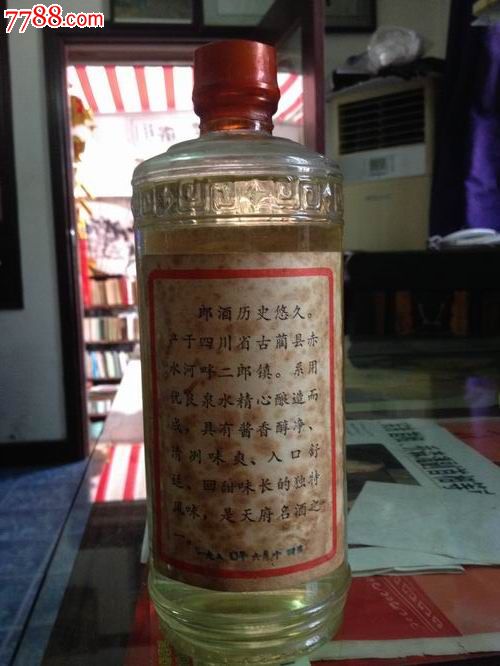 7788.com
郎酒历史悠久。
产于四川省古蔺县赤
水河畔二郎镇。系用
优良泉水精心酿造而
成，具有酱香醇净、
清冽味爽、入口舒
适、回甜味长的独特
风味，是天府名酒之
一。
一九九〇年六月十四日